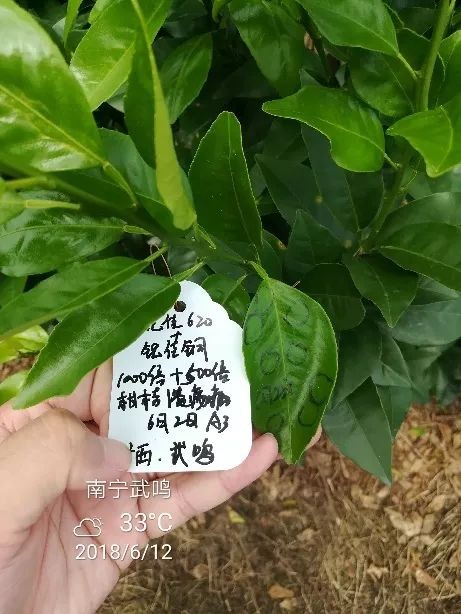 佳620
+
铝佳铜
1000倍+500倍
柑桔溃疡病
6月2日 A3
西.武鸣
南宁武鸣
33℃
2018/6/12